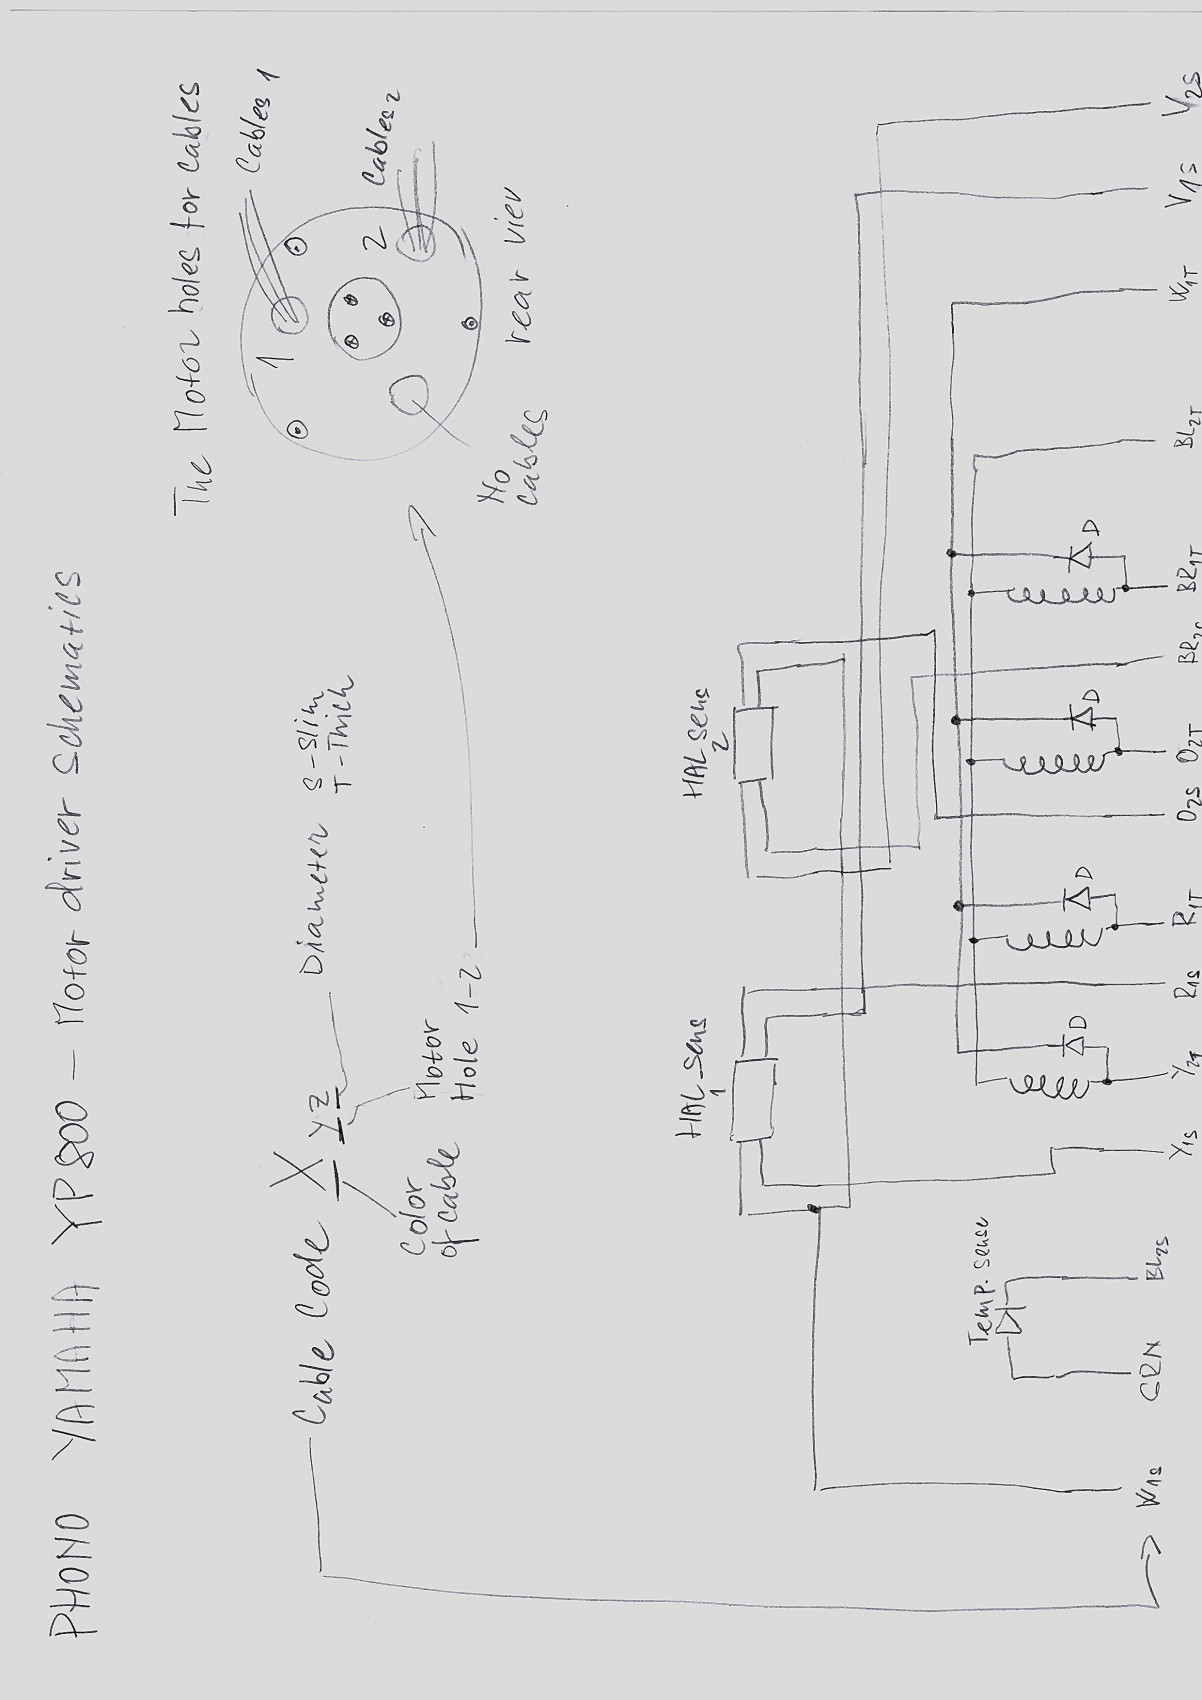 PHONO YAMAHA YP800 – Motor driver schematics
The Motor holes for cables
Cables 1
Cables 2
1
2
No
cables
rear view
Cable Code X YZ
Color
of cable
Motor
Hole 1-2
Diameter S-Slim
T-Thick
HAL_sens
1
HAL_sens
2
Temp. sense
D
D
D
D
W1S
GRN
BL2S
Y1S
Y2T
R1S
R1T
O2S
O2T
BR1T
BL2T
W1T
V1S
V2S